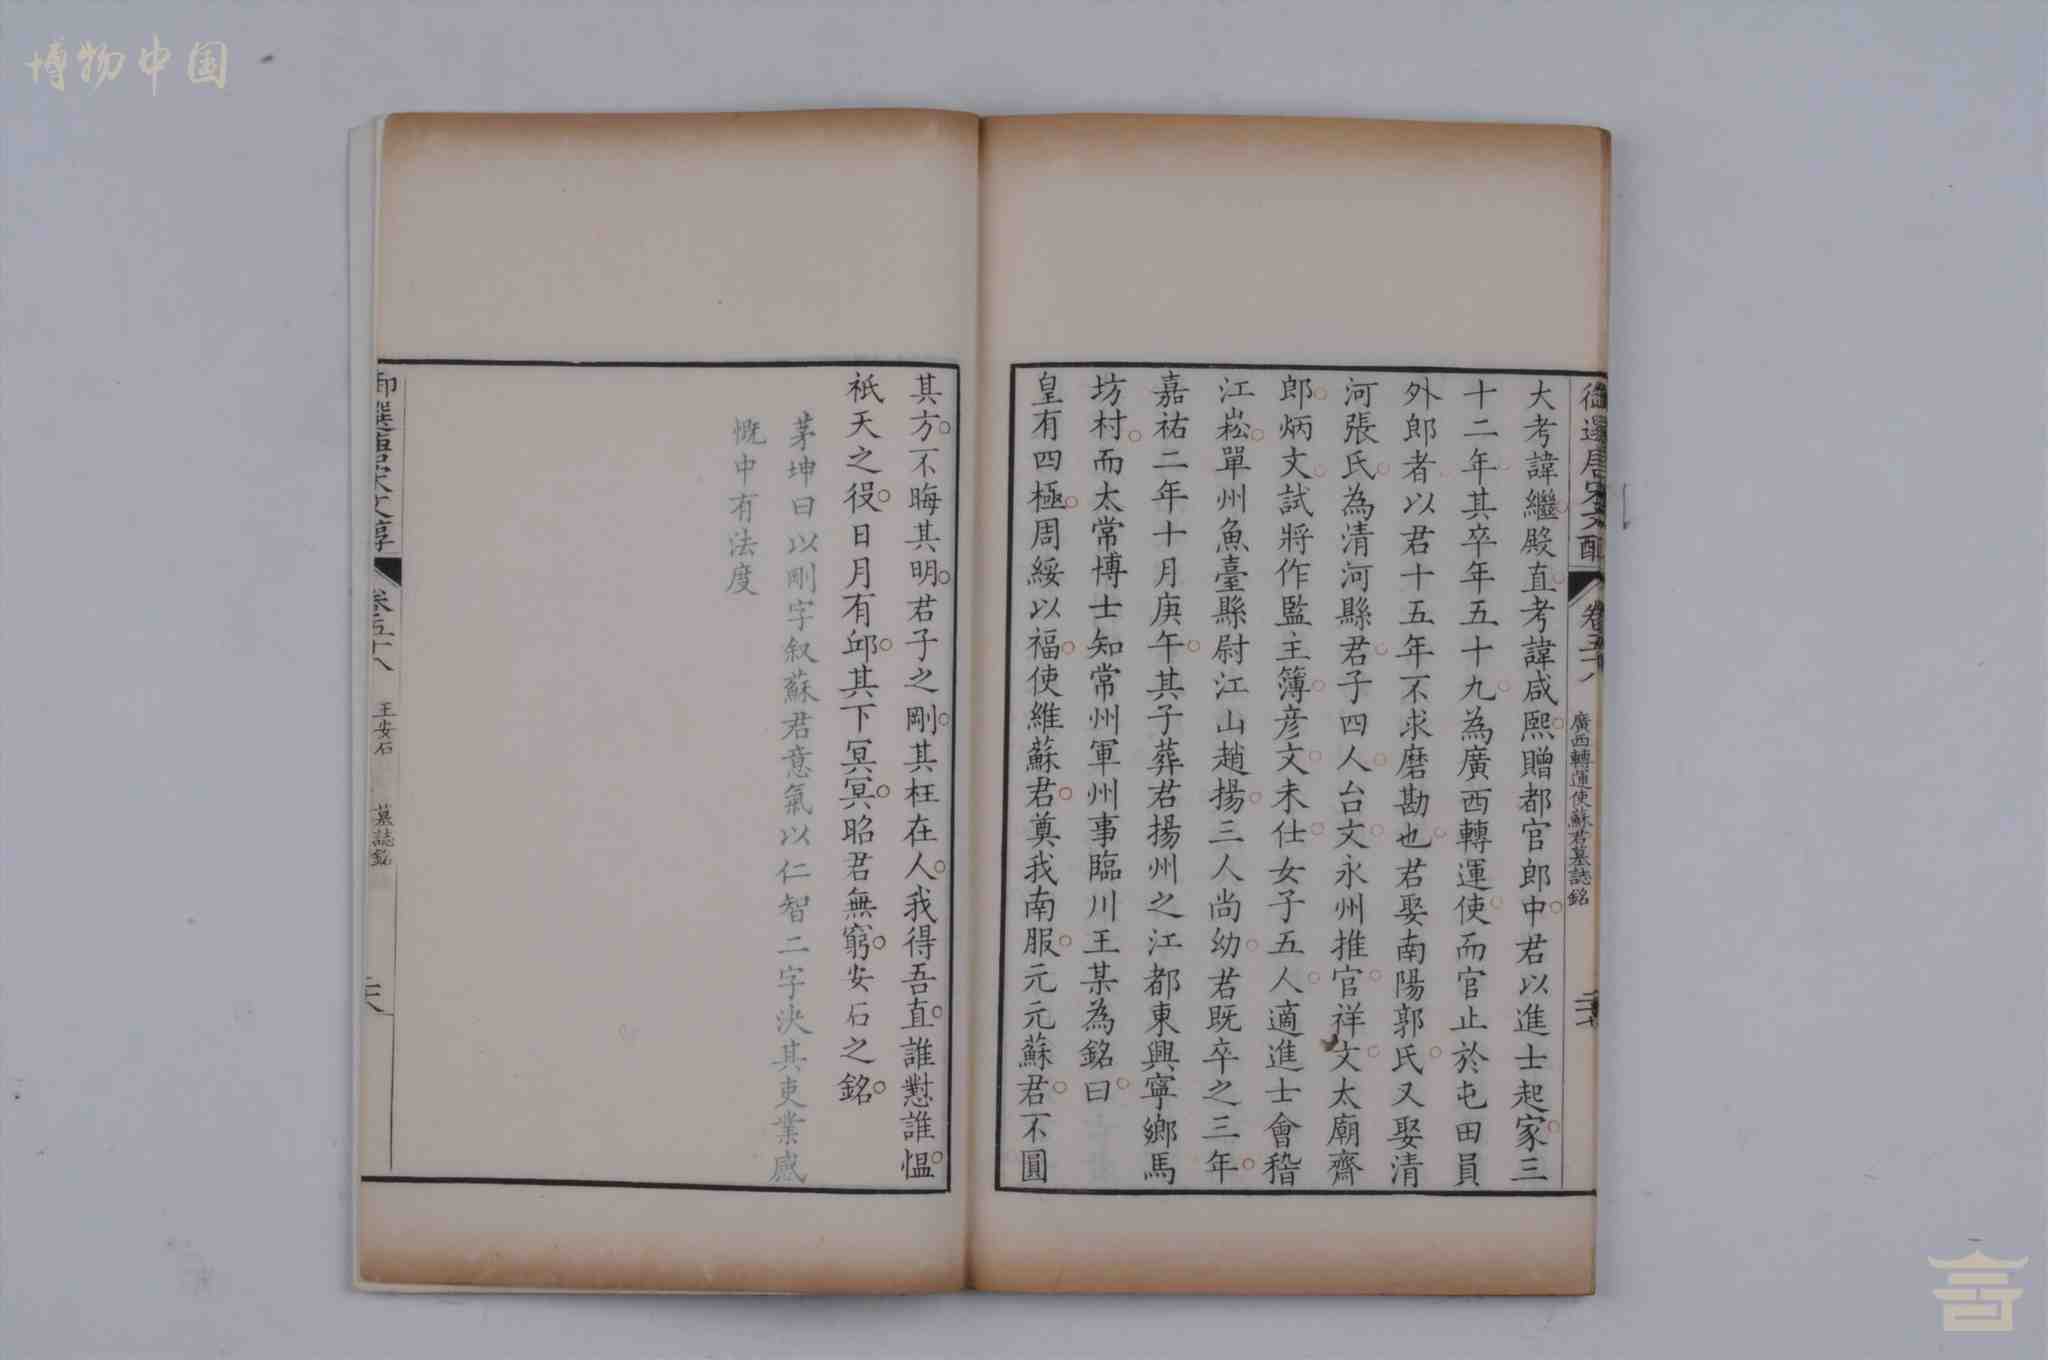 博物中国
御選唐宋文醇 卷五十八 廣西轉運使蘇君墓誌銘 二十七
大考諱繼殿直考諱咸熙贈都官郎中君以進士起家三
十二年其卒年五十九為廣西轉運使而官止於屯田員
外郎者以君十五年不求磨勘也君娶南陽郭氏又娶清
河張氏為清河縣君子四人台文永州推官祥文太廟齋
郎炳文試將作監主簿彥文未仕女子五人適進士會稽
江崧單州魚臺縣尉江山趙揚三人尚幼君既卒之三年
嘉祐二年十月庚午其子葬君揚州之江都東興寧鄉馬
坊村而太常博士知常州軍州事臨川王某為銘曰
皇有四極周綏以福使維蘇君奠我南服元元蘇君不圓
其方不晦其明君子之剛其枉在人我得吾直誰懟誰慍
祇天之役日月有邱其下冥冥昭君無窮安石之銘
茅坤曰以剛字叙蘇君意氣以仁智二字決其吏業感
慨中有法度
御選唐宋文醇 卷五十八 王安石 墓誌銘